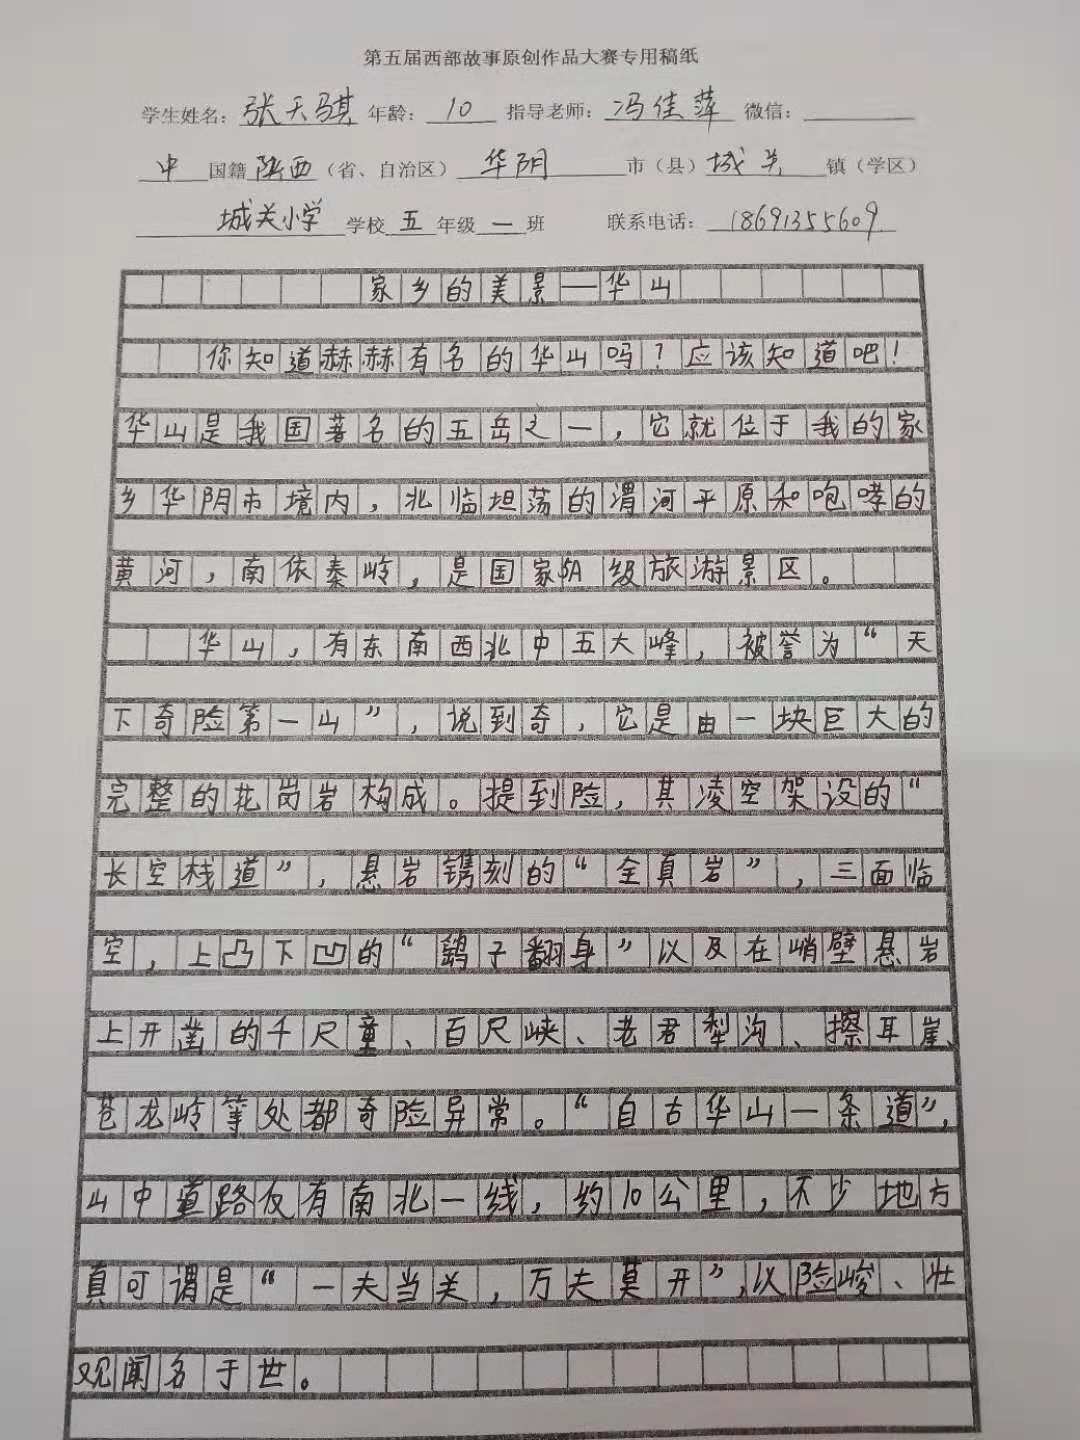 第五届西部故事原创作品大赛专用稿纸
学生姓名：张天骐 年龄：10 指导老师：冯佳萍 微信：
中国籍陕西（省、自治区）华阴市（县）城关镇（学区）
城关小学学校五年级一班 联系电话：18691355609
家乡的美景—华山
你知道赫赫有名的华山吗？应该知道吧！
华山是我国著名的五岳之一，它就位于我的家
乡华阴市境内，北临坦荡的渭河平原和咆哮的
黄河，南依秦岭，是国家5A级旅游景区。
华山，有东南西北中五大峰，被誉为“天
下奇险第一山”，说到奇，它是由一块巨大的
完整的花岗岩构成。提到险，其凌空架设的“
长空栈道”，悬岩镌刻的“全真岩”，三面临
空，上凸下凹的“鹞子翻身”以及在峭壁悬岩
上开凿的千尺童、百尺峡、老君犁沟、擦耳崖、
苍龙岭等处都奇险异常。“自古华山一条道”，
山中道路仅有南北一线，约10公里，不少地方
真可谓是“一夫当关，万夫莫开”，以险峻、壮
观闻名于世。